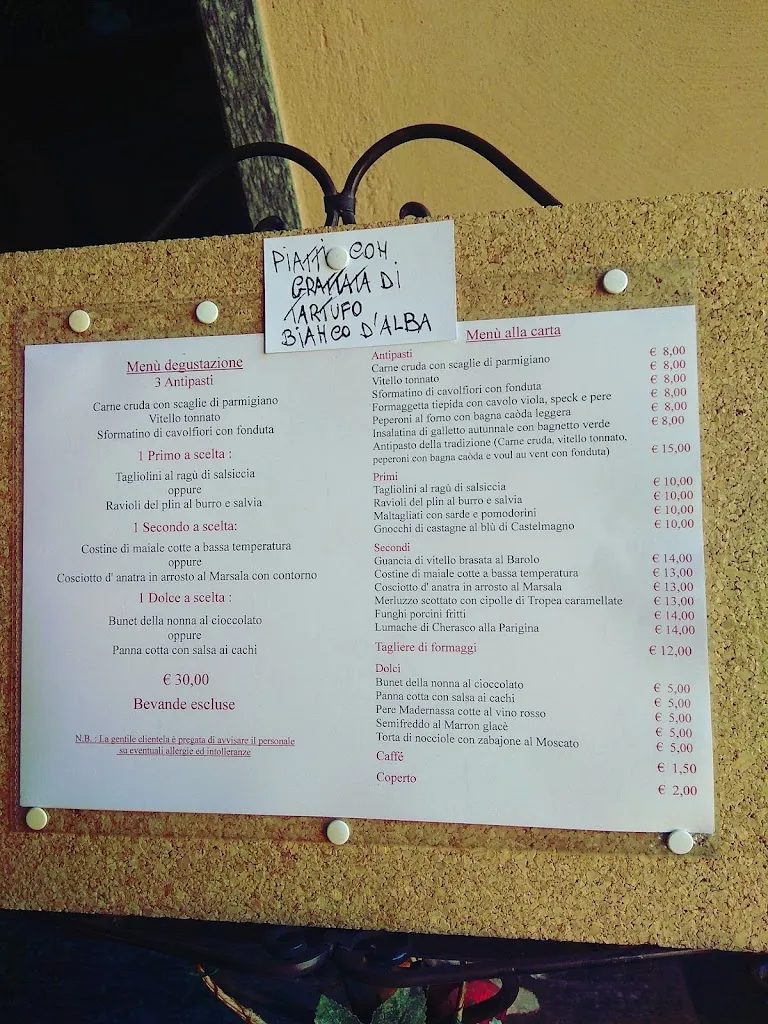 PIATTI CON
GRATTATA DI
TARTUFO
BIANCO D'ALBA
Menù degustazione
3 Antipasti
Carne cruda con scaglie di parmigiano
Vitello tonnato
Sformatino di cavolfiori con fonduta
1 Primo a scelta :
Tagliolini al ragù di salsiccia
oppure
Ravioli del plin al burro e salvia
1 Secondo a scelta:
Costine di maiale cotte a bassa temperatura
oppure
Cosciotto d' anatra in arrosto al Marsala con contorno
1 Dolce a scelta :
Bunet della nonna al cioccolato
oppure
Panna cotta con salsa ai cachi
€ 30,00
Bevande escluse
N.B. : La gentile clientela è pregata di avvisare il personale
su eventuali allergie ed intolleranze
Menù alla carta
Antipasti
Carne cruda con scaglie di parmigiano € 8,00
Vitello tonnato € 8,00
Sformatino di cavolfiori con fonduta € 8,00
Formaggetta tiepida con cavolo viola, speck e pere € 8,00
Peperoni al forno con bagna caòda leggera € 8,00
Insalatina di galletto autunnale con bagnetto verde € 8,00
Antipasto della tradizione (Carne cruda, vitello tonnato,
peperoni con bagna caòda e voul au vent con fonduta) € 15,00
Primi
Tagliolini al ragù di salsiccia € 10,00
Ravioli del plin al burro e salvia € 10,00
Maltagliati con sarde e pomodorini € 10,00
Gnocchi di castagne al blù di Castelmagno € 10,00
Secondi
Guancia di vitello brasata al Barolo € 14,00
Costine di maiale cotte a bassa temperatura € 13,00
Cosciotto d' anatra in arrosto al Marsala € 13,00
Merluzzo scottato con cipolle di Tropea caramellate € 13,00
Funghi porcini fritti € 14,00
Lumache di Cherasco alla Parigina € 14,00
Tagliere di formaggi € 12,00
Dolci
Bunet della nonna al cioccolato € 5,00
Panna cotta con salsa ai cachi € 5,00
Pere Madernassa cotte al vino rosso € 5,00
Semifreddo al Marron glacè € 5,00
Torta di nocciole con zabajone al Moscato € 5,00
Caffé € 1,50
Coperto € 2,00